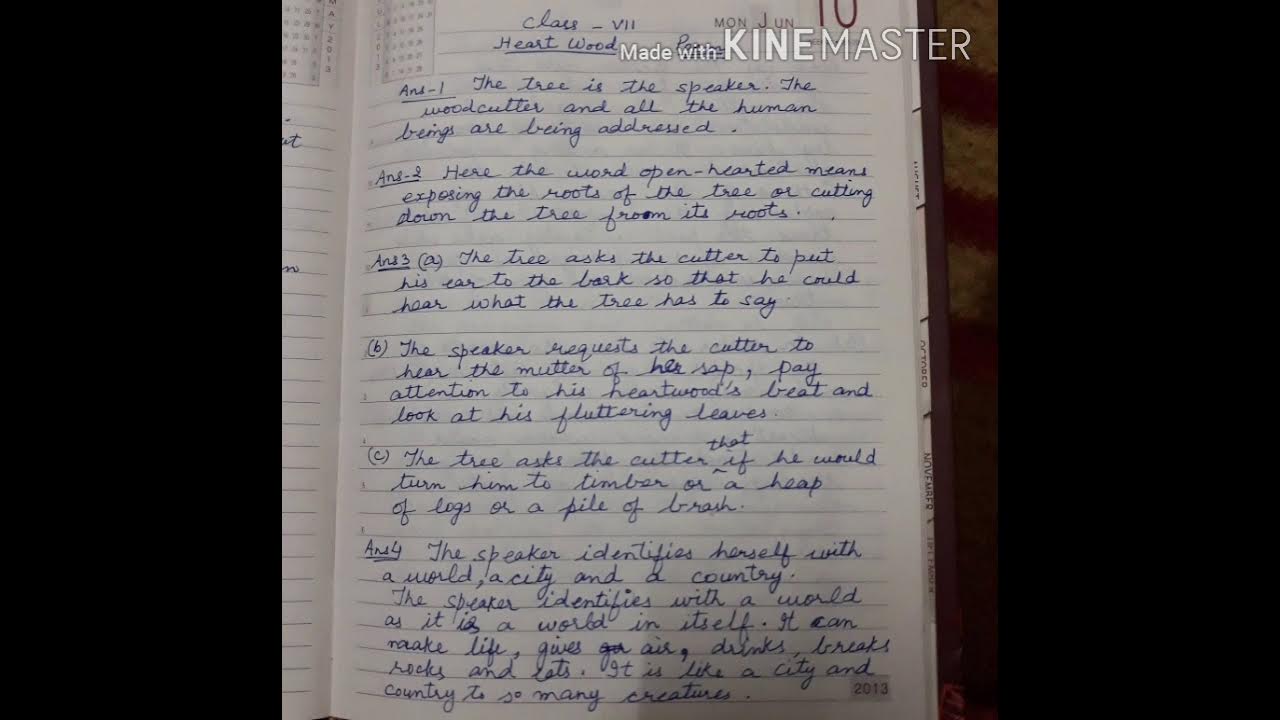 Class - VII
MON JUN 10
Heart Wood
Made with KINEMASTER
Ans-1 The tree is the speaker. The
woodcutter and all the human
beings are being addressed.
Ans-2 Here the word open-hearted means
exposing the roots of the tree or cutting
down the tree from its roots.
Ans3 (a) The tree asks the cutter to put
his ear to the bark so that he could
hear what the tree has to say.
(b) The speaker requests the cutter to
hear the mutter of her sap, pay
attention to his heartwood's beat and
look at his fluttering leaves.
that
(c) The tree asks the cutter ^ if he would
turn him to timber or a heap
of logs or a pile of brash.
Ans4 The speaker identifies herself with
a world, a city and a country.
The speaker identifies with a world
as it is a world in itself. It can
make life, gives air, drinks, breaks
rocks and lots. It is like a city and
country to so many creatures.
2013
MAY 2013
2013
AUGUST
OCTOBER
NOVEMBER